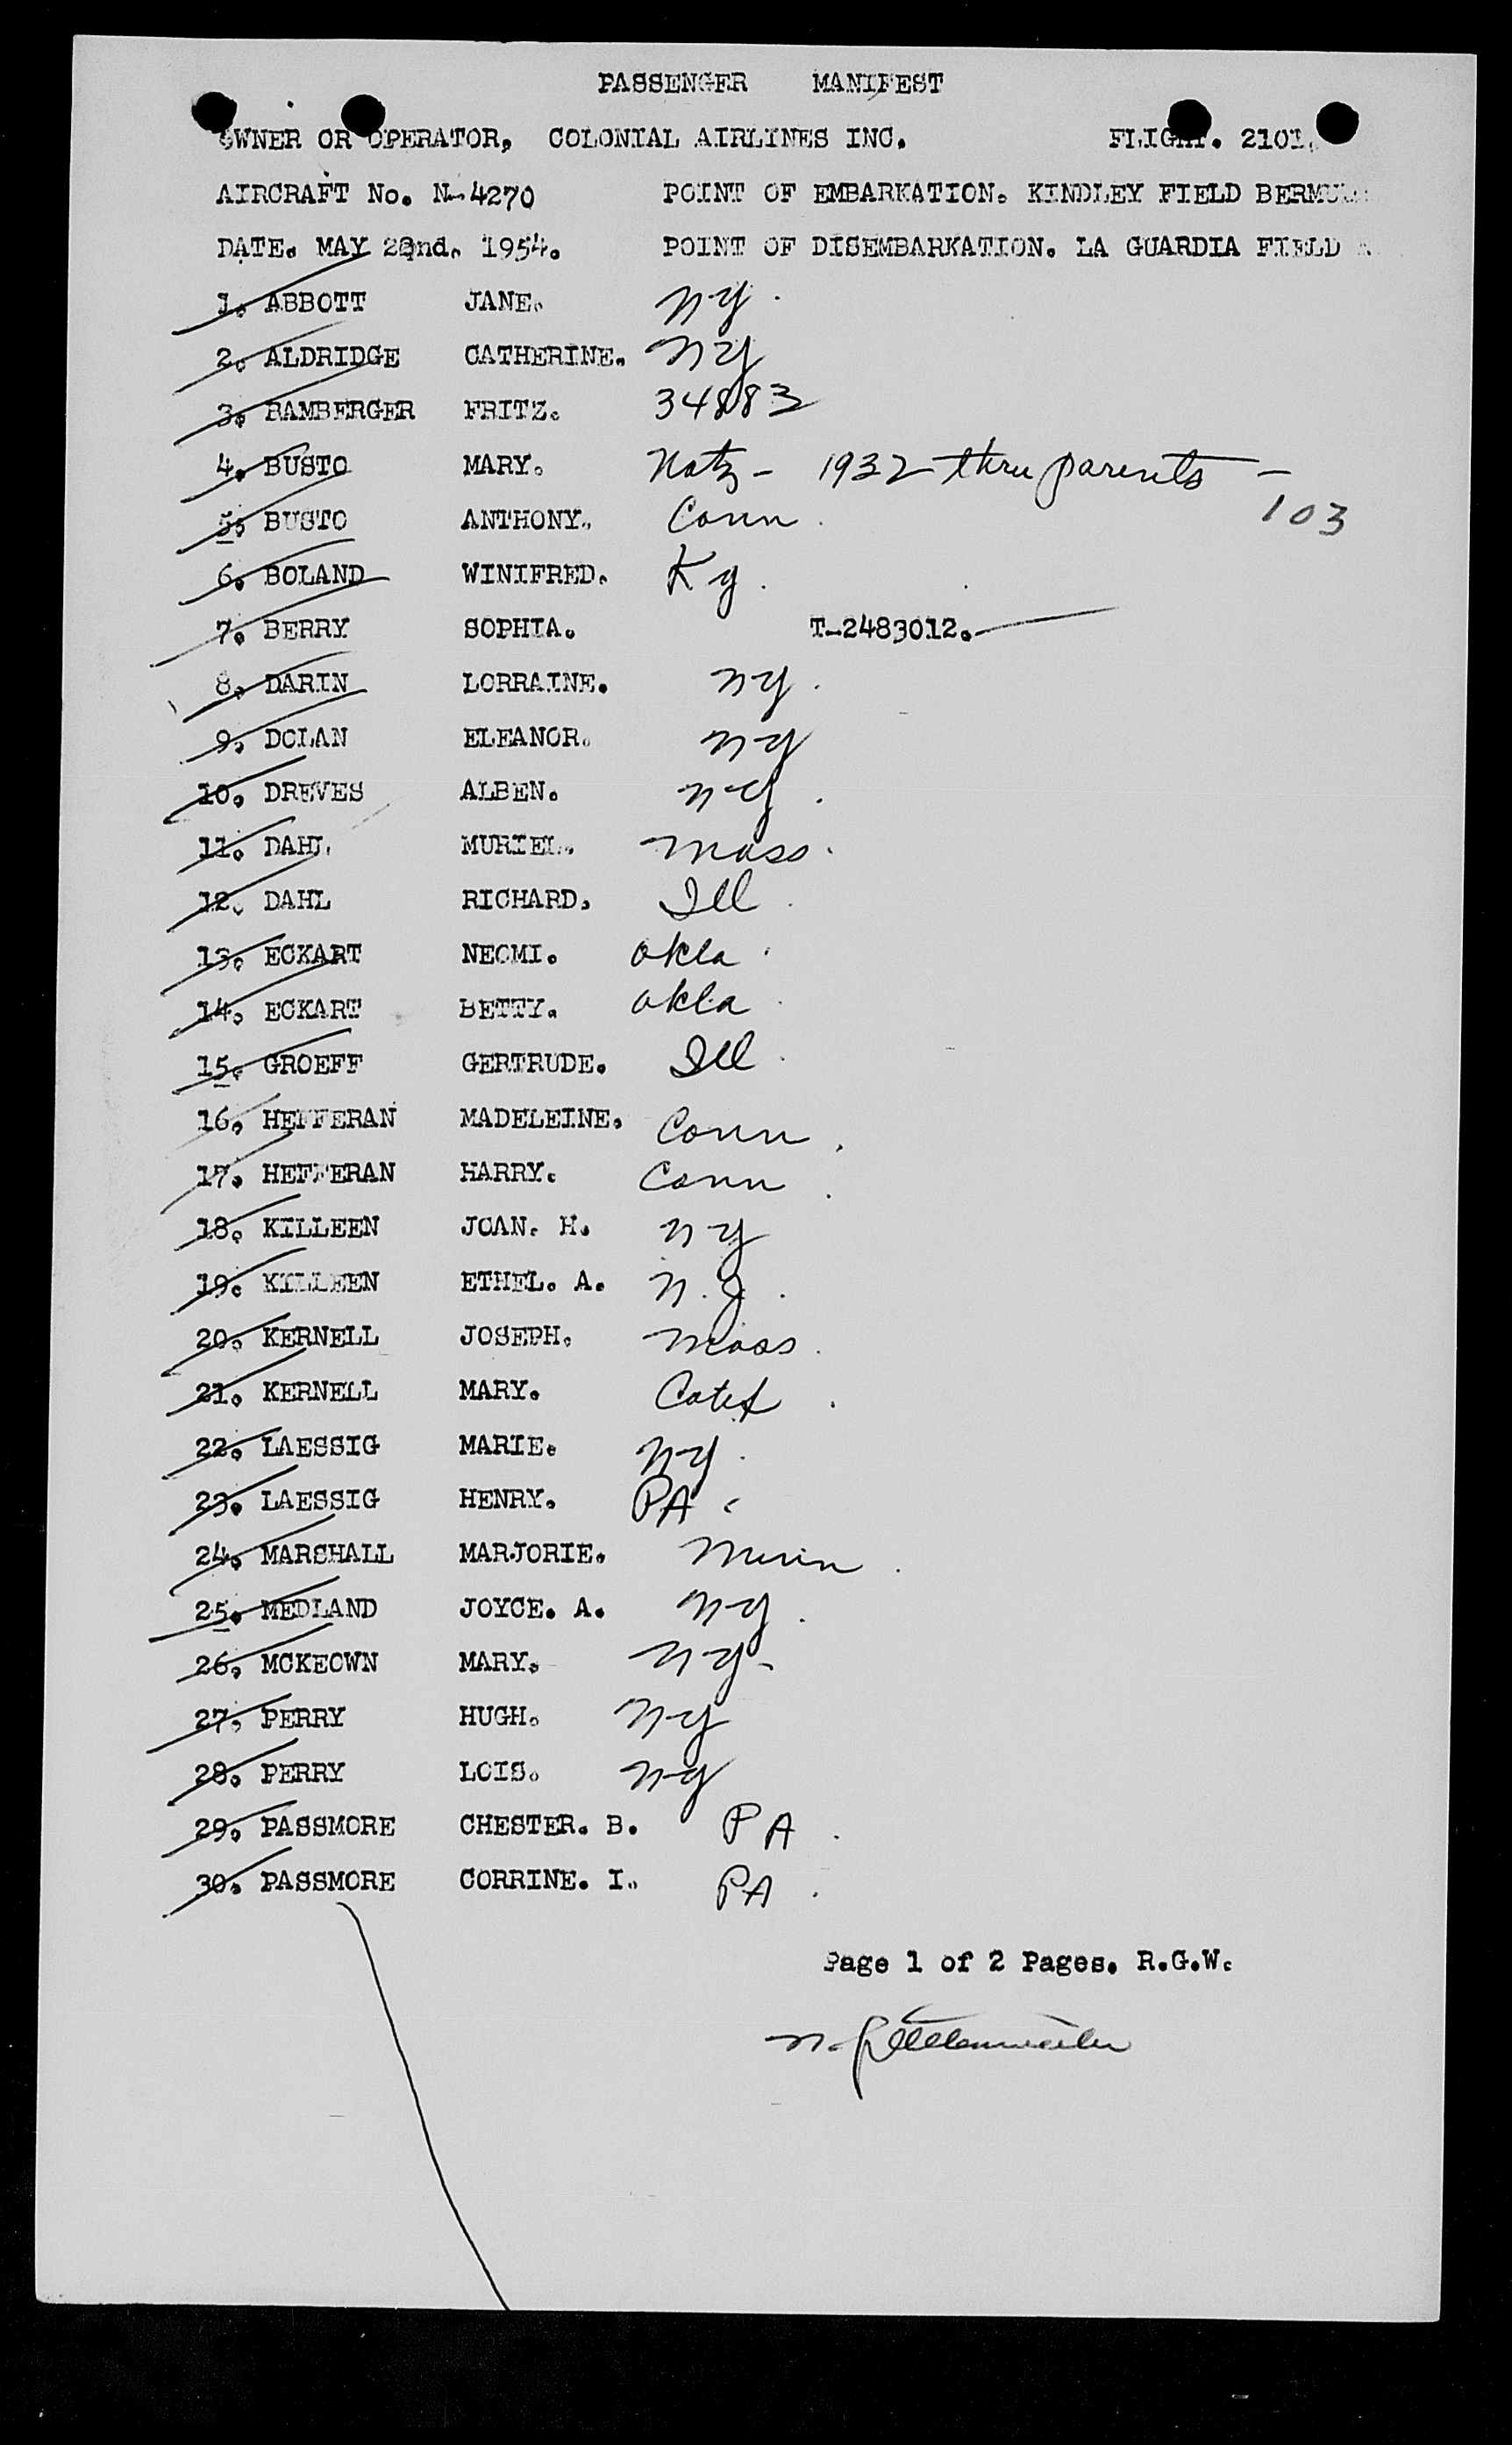 PASSENGER MANIFEST
OWNER OR OPERATOR, COLONIAL AIRLINES INC. FLIGHT. 2101.
AIRCRAFT No. N-4270 POINT OF EMBARKATION. KINDLEY FIELD
DATE. MAY 22nd. 1954. POINT OF DISEMBARKATION. LA GUARDIA FIELD
1. ABBOTT JANE. NY.
2. ALDRIDGE CATHERINE. NY
3. BAMBERGER FRITZ. 34883
4. BUSTO MARY. Natz - 1932 thru parents -
103
5. BUSTO ANTHONY. Conn.
6. BOLAND WINIFRED. Ky.
7. BERRY SOPHIA. T-2483012.
8. DARIN LORRAINE. NY.
9. DOLAN ELEANOR. NY
10. DREVES ALBEN. NY.
11. DAHL MURIEL. Mass.
12. DAHL RICHARD. Ill.
13. ECKART NEOMI. Okla.
14. ECKART BETTY. Okla.
15. GROEFF GERTRUDE. Ill.
16. HEFFERAN MADELEINE. Conn.
17. HEFFERAN HARRY. Conn.
18. KILLEEN JOAN. H. NY
19. KILLEEN ETHEL. A. N.J.
20. KERNELL JOSEPH. Mass.
21. KERNELL MARY. .
22. LAESSIG MARIE. NY.
23. LAESSIG HENRY. PA.
24. MARSHALL MARJORIE. Minn.
25. MEDLAND JOYCE. A. NY.
26. MCKEOWN MARY. NY-
27. PERRY HUGH. NY
28. PERRY LOIS. NY
29. PASSMORE CHESTER. B. PA.
30. PASSMORE CORRINE. I. PA.
Page 1 of 2 Pages. R.G.W.